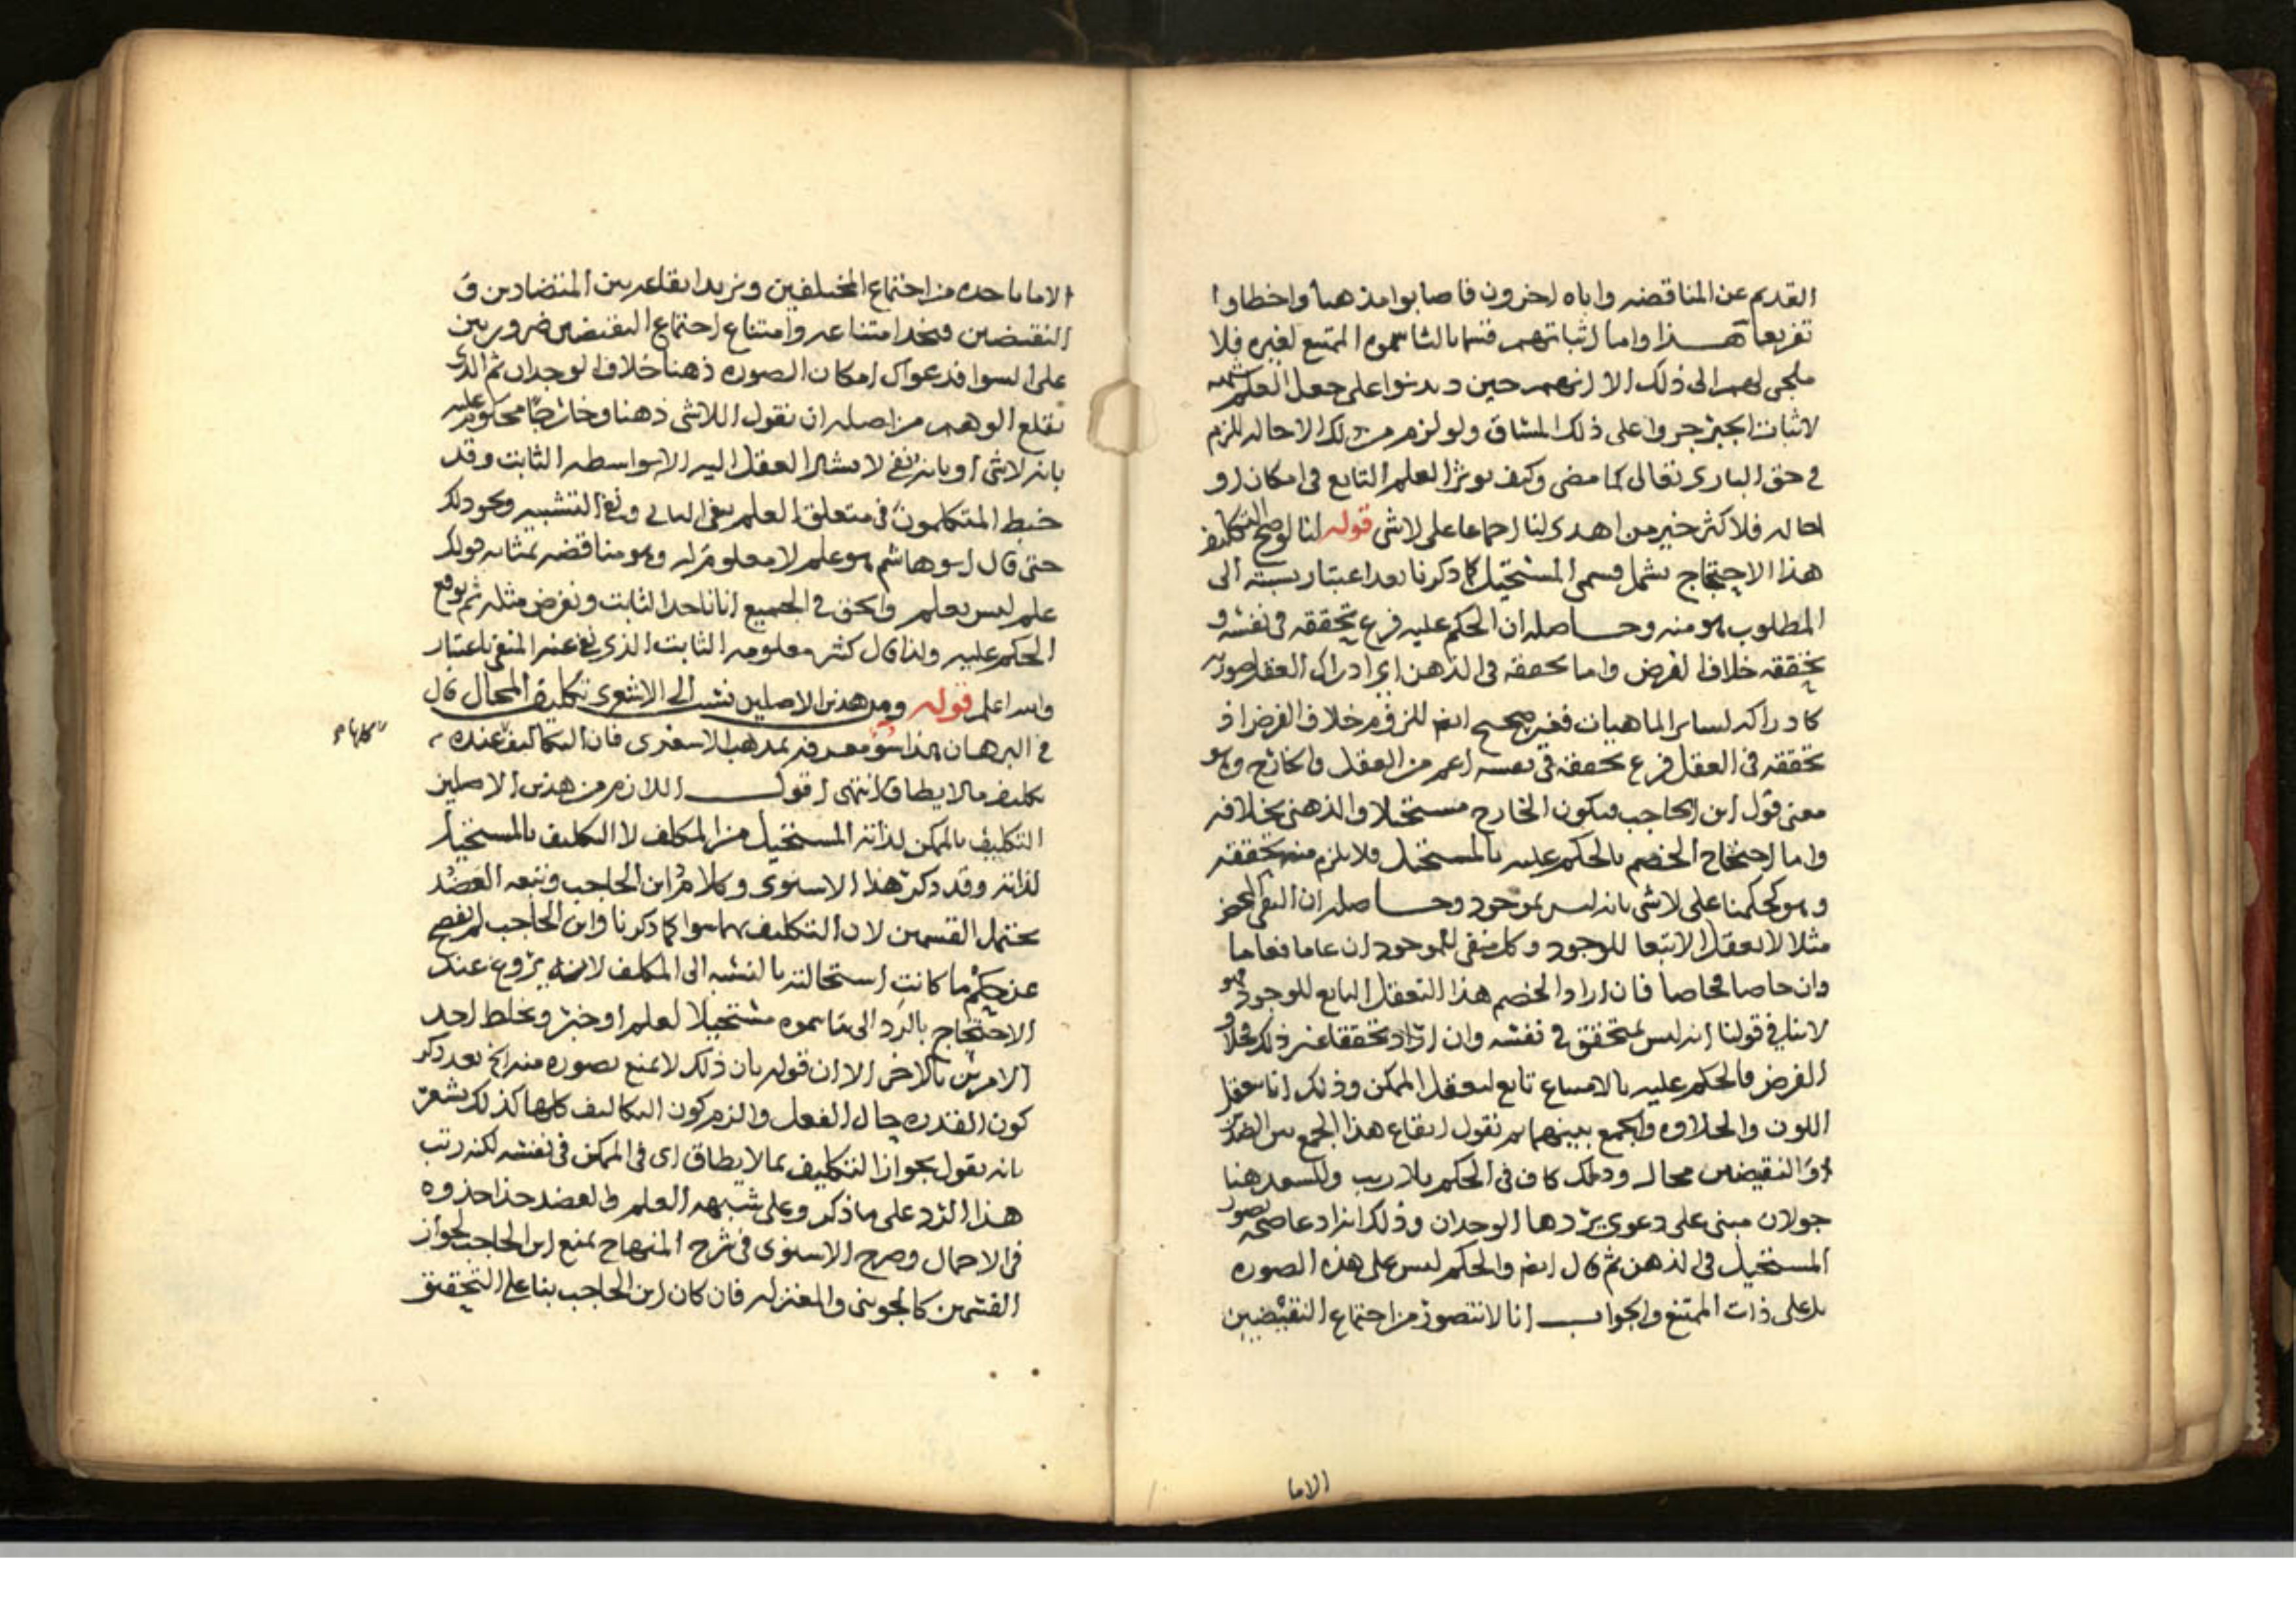 القديم عن المناقضه واباه اخرون فاصابوا مذهبا واخطاوا
تفريعا هذا واما اثباتهم قسما ثالثا سموه الممتنع لغيره فلا
ملجى لهم الى ذلك الا انهم حين بنوا على جعل العلم شبهه
لاثبات الجبر جروا على ذلك المساق ولو لزم من ذلك الاحاله للزم
في حق البارى تعالى كما مضى وكيف يوثر العلم التابع في امكان او
احاله فلا كثر خير من اهدى لنا اجماعا على لاشى قوله لنا لو صح التكليف
هذا الاحتجاج يشمل قسمى المستحيل كما ذكرنا بعد اعتبار نسبته الى
المطلوب هو منه وحاصله ان الحكم عليه فرع تحققه في نفسه و
تحققه خلاف الفرض واما تحققه في الذهن اى ادراك العقل صورته
كادراكه لساير الماهيات فغير صحيح ايضا للزوم خلاف الفرض اذ
تحققه في العقل فرع تحققه في نفسه اعم من العقل والخارج وهو
معنى قول ابن الحاجب فيكون الخارج مستحيلا والذهنى بخلافه
واما احتجاج الخصم بالحكم عليه بالمستحيل فلا يلزم منه تحققه
وهو كحكمنا على لاشى بانه ليس بموجود وحاصله ان النفى المحض
مثلا لا يعقل الا تبعا للوجود وكل منفى للموجود ان عاما فعاما
وان خاصا فخاصا فان اراد الخصم هذا التعقل التابع للوجود فهو
لا ينافي قولنا انه ليس بمتحقق في نفسه وان اراد تحققا غير ذلك فخلاف
الفرض فالحكم عليه بالامتناع تابع لتعقل الممكن وذلك انا نعقل
اللون والحلاوه والجمع بينهما ثم نقول ايقاع هذا الجمع بين الضدين
او النقيضين محال وذلك كاف في الحكم بلا ريب وللسعد هنا
جولان مبنى على دعوى يردها الوجدان وذلك انه ادعا صحه تصور
المستحيل في الذهن ثم قال ايضا والحكم ليس على هذه الصوره
بل على ذات الممتنع والجواب انا لا نتصور من اجتماع النقيضين
الاما
الا ما ناخذه من اجتماع المختلفين ونريد ايقاعه بين المتضادين و
النقيضين فنجد امتناعه وامتناع اجتماع النقيضين ضروريين
على السوا فدعواك امكان الصوره ذهنا خلاف الوجدان ثم الذى
يقلع الوهم من اصله ان نقول اللاشى ذهنا وخارجا محكوم عليه
بانه لاشى او بانه نفى لا يشار العقل اليه الا بواسطه الثابت وقد
خبط المتكلمون في متعلق العلم بنفى الثانى ونفى التشبيه ونحو ذلك
حتى قال ابو هاشم هو علم لا معلوم له وهو مناقضه بمثابه قولك
علم ليس بعلم والحق في الجميع انا ناخذ الثابت ونفرض مثله ثم نوقع
الحكم عليه ولذا قال كثير معلومه الثابت الذى نفى عنه المنفى باعتبار
والله اعلم قوله ومن هذين الاصلين نسب الى الاشعرى تكليف المحال قال
في البرهان هذا سو معرفه بمذهب الاشعرى فان التكاليف عنده
كلها
تكليف مالا يطاق انتهى اقول اللازم من هذين الاصلين
التكليف بالممكن لذاته المستحيل من المكلف لا التكليف بالمستحيل
لذاته وقد ذكر هذا الاسنوى وكلام ابن الحاجب وتبعه العضد
يحتمل القسمين لان التكليف بهما سوا كما ذكرنا وابن الحاجب لم يفصح
عن حكم ما كانت استحالته بالنسبه الى المكلف لانه يزوغ عند
الاحتجاج بالرد الى ما سموه مستحيلا لعلم او خبر ويخلط احد
الامرين بالاخر الا ان قوله بان ذلك لا يمنع تصوره منه الخ بعد ذكر
كون القدره حال الفعل والزم كون التكاليف كلها كذلك يشعر
بانه يقول بجواز التكليف بما لا يطاق اى في الممكن في نفسه لكنه رتب
هذا الرد على ما ذكر وعلى شبهه العلم والعضد حذا حذوه
في الاجمال وصرح الاسنوى في شرح المنهاج بمنع ابن الحاجب لجواز
القسمين كالجوينى والمعتزله فان كان ابن الحاجب بنا على التحقيق